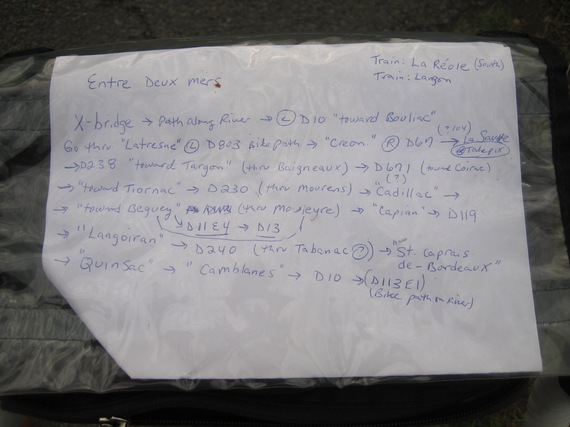 Train: La Réole (South)
Train: Langon
Entre Deux mers
X-bridge → path along River → Ⓛ D10 "toward Bouliac"
Go thru "Latresne" Ⓛ D803 Bike path → "Creon" Ⓡ D671 → La Sauve
(Take pix)
→ D238 "toward Targon" (thru Baigneaux) → D671 (toward
(?)
→ "toward → D230 (thru mourens) → "Cadillac" →
→ "toward Beguey" (thru → "Capian" → D119
D11E4 → D13
→ "Langoiran" → D240 (thru Tabanac ?) → "St. Caprais
de-Bordeaux"
→ "QuinSac" → "Camblanes" → D10 → (D113E1)
(Bike path on River)